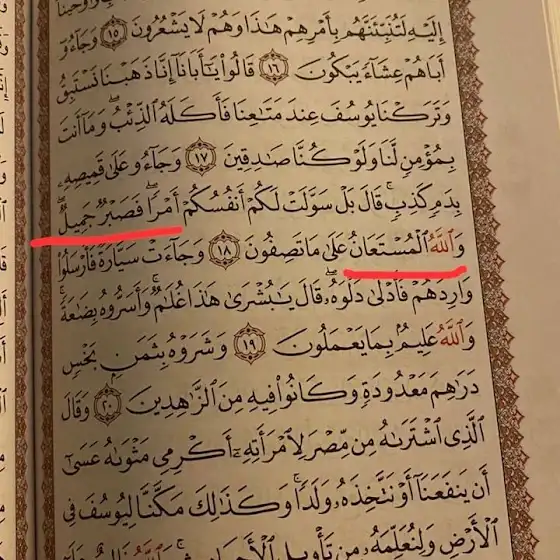 إِلَيْهِ لَتُنَبِّئَنَّهُم بِأَمْرِهِمْ هَٰذَا وَهُمْ لَا يَشْعُرُونَ ١٥ وَجَآءُو
أَبَاهُمْ عِشَآءً يَبْكُونَ ١٦ قَالُوا۟ يَٰٓأَبَانَآ إِنَّا ذَهَبْنَا نَسْتَبِقُ
وَتَرَكْنَا يُوسُفَ عِندَ مَتَٰعِنَا فَأَكَلَهُ ٱلذِّئْبُ ۖ وَمَآ أَنتَ
بِمُؤْمِنٍ لَّنَا وَلَوْ كُنَّا صَٰدِقِينَ ١٧ وَجَآءُو عَلَىٰ قَمِيصِهِۦ
بِدَمٍ كَذِبٍ ۚ قَالَ بَلْ سَوَّلَتْ لَكُمْ أَنفُسُكُمْ أَمْرًا ۖ فَصَبْرٌ جَمِيلٌ ۖ
وَٱللَّهُ ٱلْمُسْتَعَانُ عَلَىٰ مَا تَصِفُونَ ١٨ وَجَآءَتْ سَيَّارَةٌ فَأَرْسَلُوا۟
وَارِدَهُمْ فَأَدْلَىٰ دَلْوَهُۥ ۖ قَالَ يَٰبُشْرَىٰ هَٰذَا غُلَٰمٌ ۚ وَأَسَرُّوهُ بِضَٰعَةً ۚ
وَٱللَّهُ عَلِيمٌۢ بِمَا يَعْمَلُونَ ١٩ وَشَرَوْهُ بِثَمَنٍۭ بَخْسٍ
دَرَٰهِمَ مَعْدُودَةٍ وَكَانُوا۟ فِيهِ مِنَ ٱلزَّٰهِدِينَ ٢٠ وَقَالَ
ٱلَّذِى ٱشْتَرَىٰهُ مِن مِّصْرَ لِٱمْرَأَتِهِۦٓ أَكْرِمِى مَثْوَىٰهُ عَسَىٰٓ
أَن يَنفَعَنَآ أَوْ نَتَّخِذَهُۥ وَلَدًا ۚ وَكَذَٰلِكَ مَكَّنَّا لِيُوسُفَ فِى
ٱلْأَرْضِ وَلِنُعَلِّمَهُۥ مِن تَأْوِيلِ